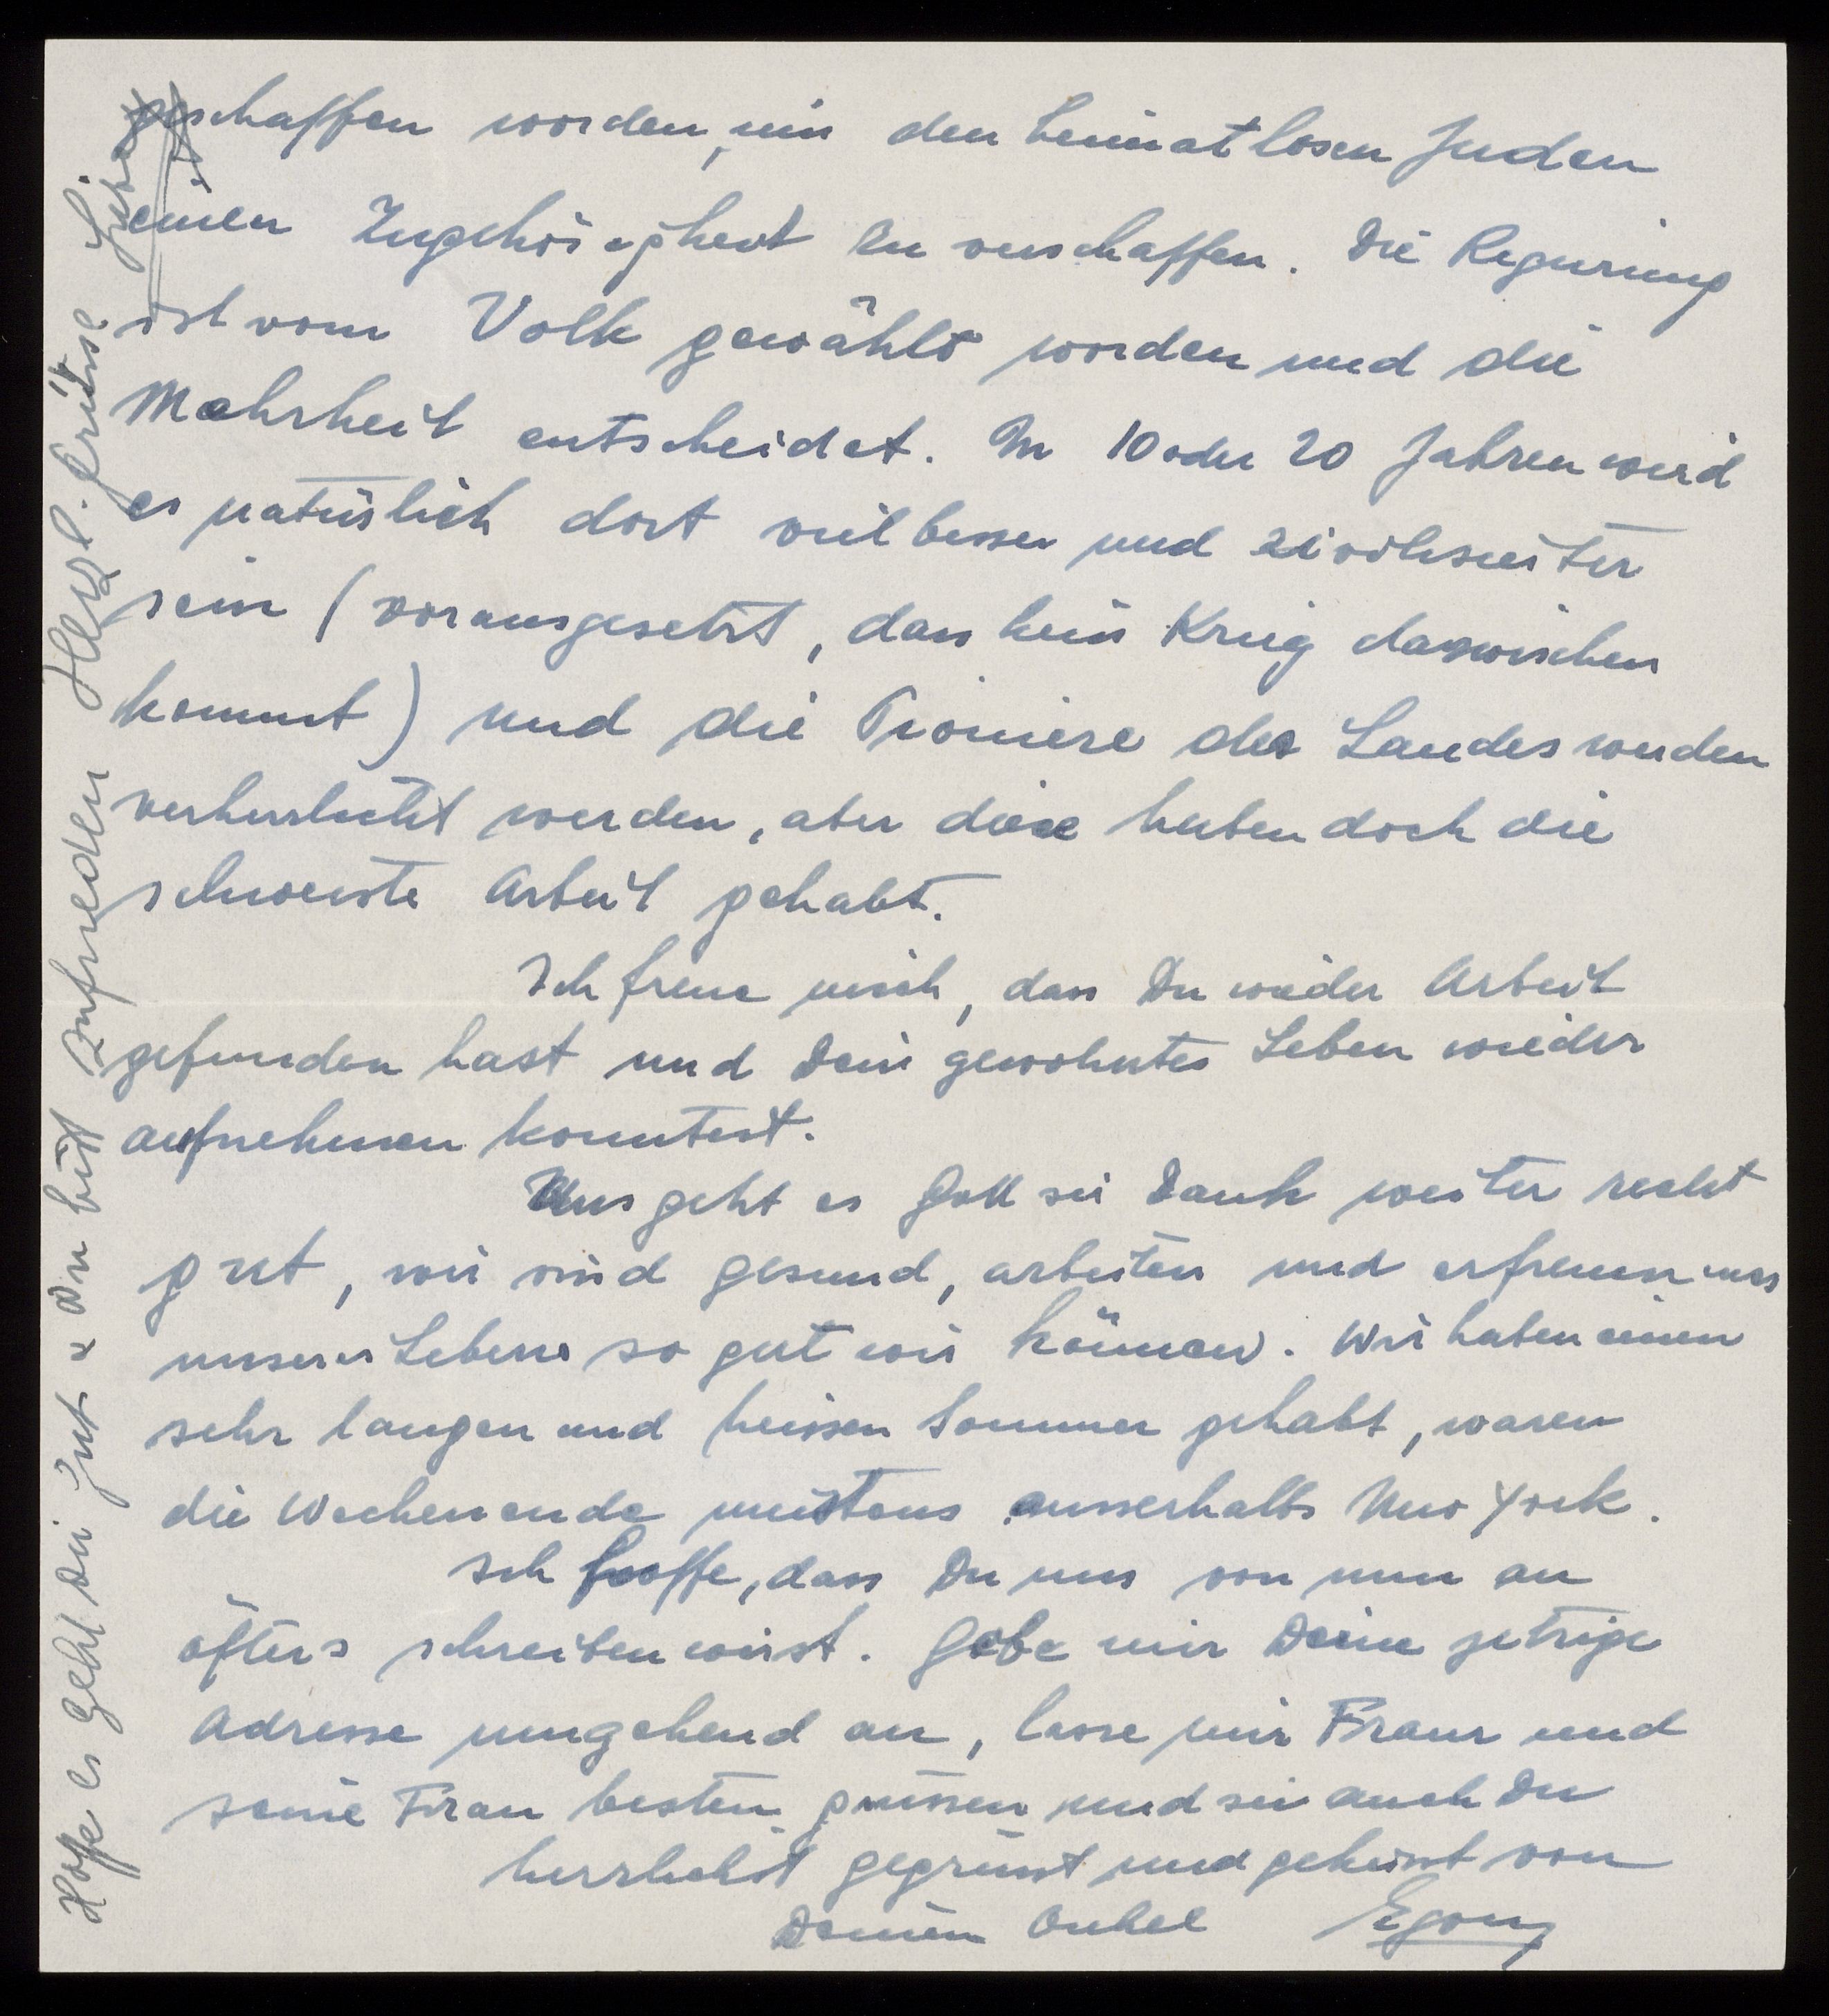 geschaffen worden, um den heimatlosen Juden
einen Zugehörigkeit zu verschaffen. Die Regierung
ist vom Volk gewählt worden und die
Mehrheit entscheidet. In 10 oder 20 Jahren wird
es natürlich dort viel besser und zivilisierter
sein (vorausgesetzt, dass kein Krieg dazwischen
kommt) und die Pioniere des Landes werden
verherrlicht werden, aber diese haben doch die
schwerste Arbeit gehabt.
Ich freue mich, dass Du wieder Arbeit
gefunden hast und Dein gewohntes Leben wieder
aufnehmen konntest.
Uns geht es Gott sei Dank weiter recht
gut, wir sind gesund, arbeiten und erfreuen uns
unseres Lebens so gut wir können. Wir haben einen
sehr langen und heissen Sommer gehabt, waren
die Wochenende meistens ausserhalb New York.
Ich hoffe, dass Du uns von nun an
öfters schreiben wirst. Gebe mir Deine jetzige
Adresse umgehend an, lasse mir Franz und
seine Frau bestens grüssen und sei auch Du
herzlichst gegrüsst und geküsst von
Deinem Onkel Egon
Hoffe es geht Dir gut u. Du bist zufrieden Herzl. Grüsse